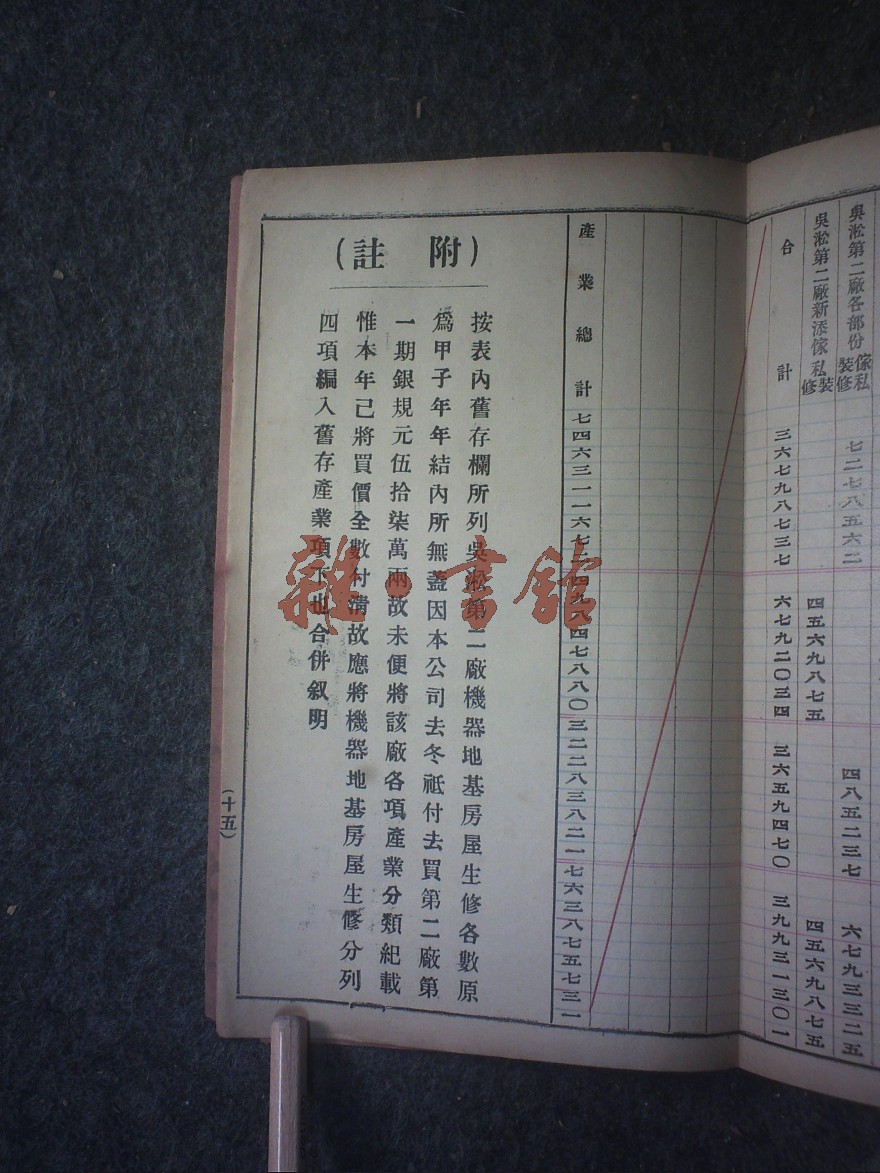 吳淞第二廠各部份傢私裝修 七二七八五六二 四八五二三七 六七九三三二五
吳淞第二廠新添傢私裝修 四五六九八七五 四五六九八七五
合計 三六七九八七三七 六七九二〇三四 三六五九四七〇 三九九三一三〇一
產業總計 七四六三一一六七二 四九八四七八八〇 三二二八三八二一 七六三八七五七三一
(附註)
按表內舊存欄所列吳淞第二廠機器地基房屋生修各數原
爲甲子年年結內所無蓋因本公司去冬祗付去買第二廠第
一期銀規元伍拾柒萬兩故未便將該廠各項產業分類紀載
惟本年已將買價全數付清故應將機器地基房屋生修分列
四項編入舊存產業項下也合併叙明
(十五)
雜·書館